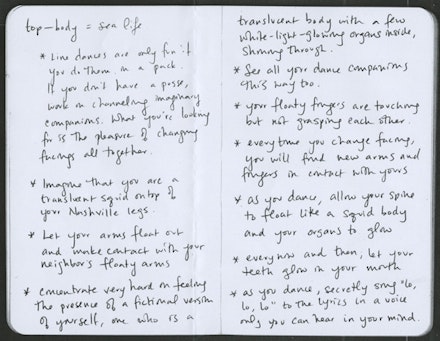 top-body = sea life
* Line dances are only fun if
you do them in a pack.
If you don't have a posse,
work on channeling imaginary
companions. What you're looking
for is the pleasure of changing
facings all together.
* Imagine that you are a
translucent squid on top of
your Nashville legs.
* Let your arms float out
and make contact with your
neighbor's floaty arms
* concentrate very hard on feeling
the presence of a fictional version
of yourself, one who is a
translucent body with a few
white-light-glowing organs inside,
shining through.
* See all your dance companions
this way too.
* your floaty fingers are touching
but not grasping each other.
* everytime you change facing,
you will find new arms and
fingers in contact with yours
* as you dance, allow your spine
to float like a squid body
and your organs to glow
* every now and then, let your
teeth glow in your mouth
* as you dance, secretly sing "lo,
lo, lo" to the lyrics in a voice
only you can hear in your mind.